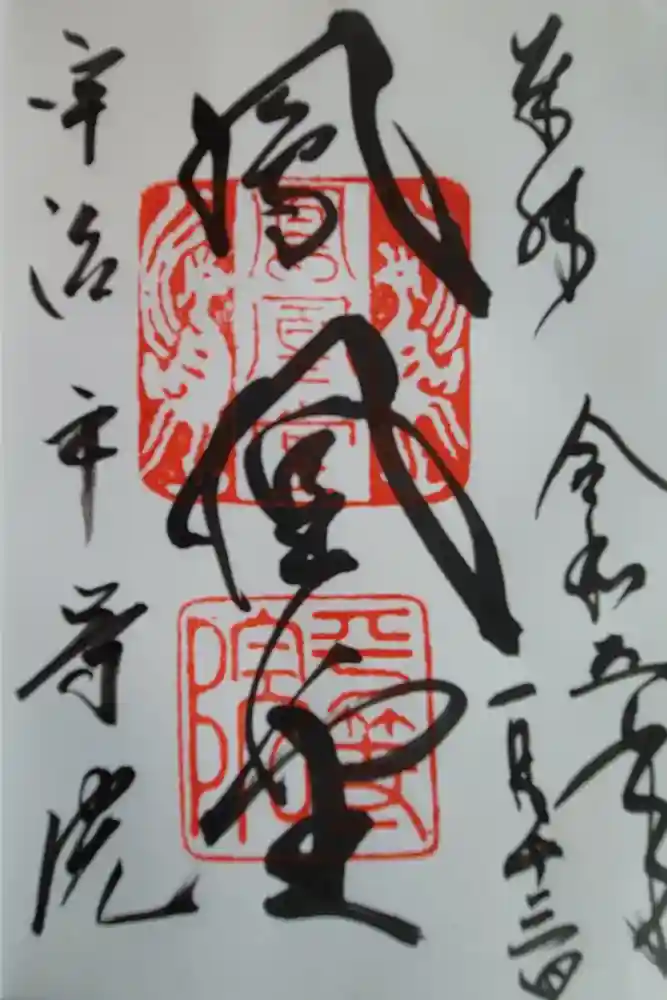 奉拝
令和五年
一月十三日
鳳凰堂
鳳凰堂
平等院
宇治
平等院